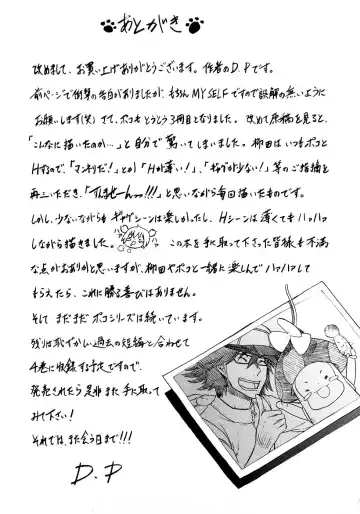 あとがき
改めまして、お買い上げありがとうございます。作者のD.Pです。
前ページで衝撃の告白がありましたが、もちろんMY SELFですので誤解の無いように
お願いします(笑) さて、ポコもとうとう3冊目となりました。改めて原稿を見ると、
「こんなに描いてたのか…」と自分で驚いてしまいました。柳田はいつもポコと
Hするので、「マンネリだ!」とか「Hが薄い!」、「ギャグが少ない!」等のご指摘を
再三いただき、「すんませーんっっ!!!」と思いながら毎回描いたものです。
しかし、少ないながらもギャグシーンは楽しかったし、Hシーンは薄くてもハァハァ
しながら描きました。この本を手に取って下さった皆様も不満
な点がおありかと思いますが、柳田やポコと一緒に楽しんでハァハァして
もらえたら、これに勝る喜びはありません。
そしてまだまだポコシリーズは続いています。
残りは恥ずかしい過去の短編と合わせて
4巻に収録する予定ですので、
発売されたら是非また手に取って
みて下さい!
それでは、また会う日まで!!!
D.P